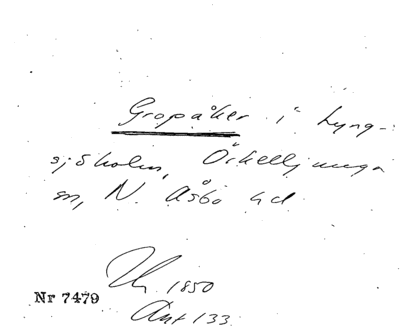 Gropåker i Lyng-
sjöholm, Örkelljunga
sn, N. Åsbo hd
1850
Nr 7479
Akt 133